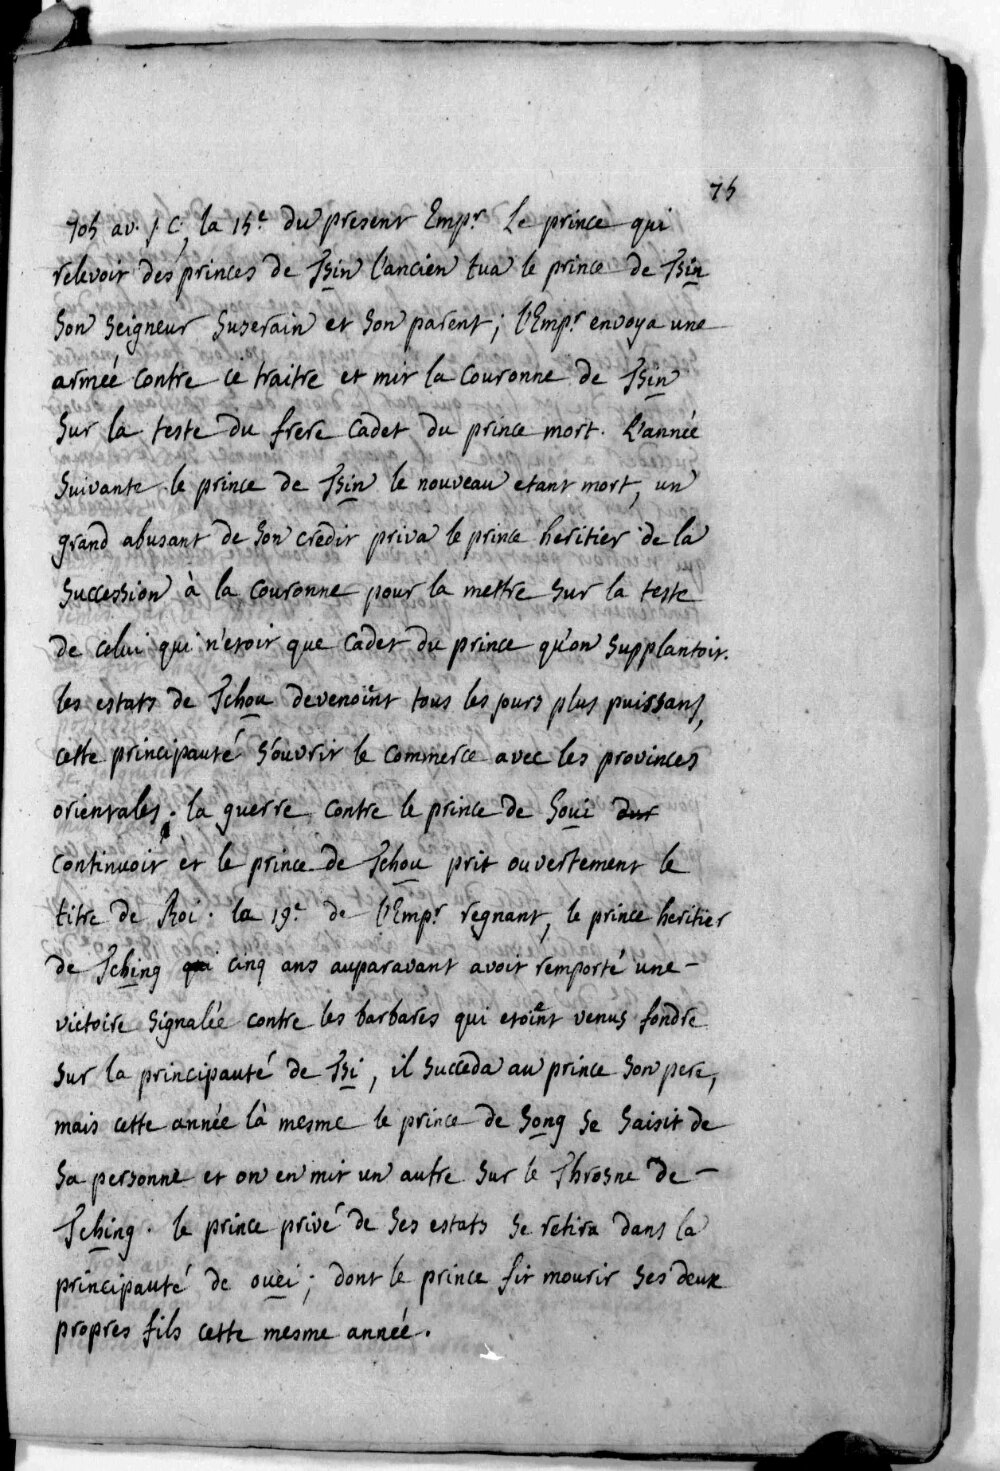 75
705 av. J C, la 15.e du present Emp.r Le prince qui
relevoit des princes de Tsin l'ancien tua le prince de Tsin
son seigneur suserain et son parent; l'Emp.r envoya une
armée contre ce traitre et mit la couronne de Tsin
sur la teste du frere cadet du prince mort. L'année
suivante le prince de Tsin le nouveau etant mort, un
grand abusant de son credit priva le prince heritier de la
succession à la couronne pour la mettre sur la teste
de celui qui n'etoit que cadet du prince qu'on supplantoit.
les estats de Tchou devenoint tous les jours plus puissans,
cette principauté s'ouvrit le commerce avec les provinces
orientales; la guerre contre le prince de Soui
continuoit et le prince de Tchou prit ouvertement le
titre de Roi. la 19.e de l'Emp.r regnant, le prince heritier
de Tching qui cinq ans auparavant avoit remporté une -
victoire signalée contre les barbares qui etoient venus fondre
sur la principauté de Tsi, il succeda au prince son pere,
mais cette année là mesme le prince de Song se saisit de
sa personne et on en mit un autre sur le Throsne de -
Tching. le prince privé de ses estats se retira dans la
principauté de ouei; dont le prince fit mourir ses deux
propres fils cette mesme année.